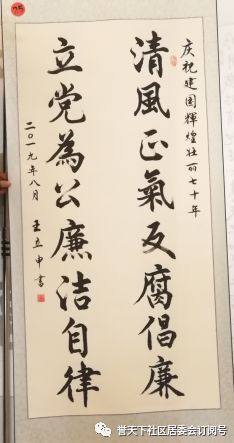 庆祝建国輝煌壮丽七十年
清風正氣反腐倡廉
立党為公廉洁自律
二〇一九年八月
王立申書
誉天下社区居委会订阅号